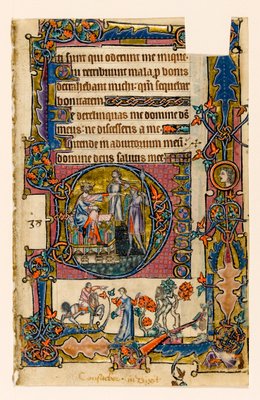 qui oderunt me inique
Qui retribuunt mala p bonis
detrahebant michi · qm sequebar
bonitatem
Ne derelinquas me domine ds
meus: ne discesseris a me
Intende in adiutorium meū
domine deus salutis mee